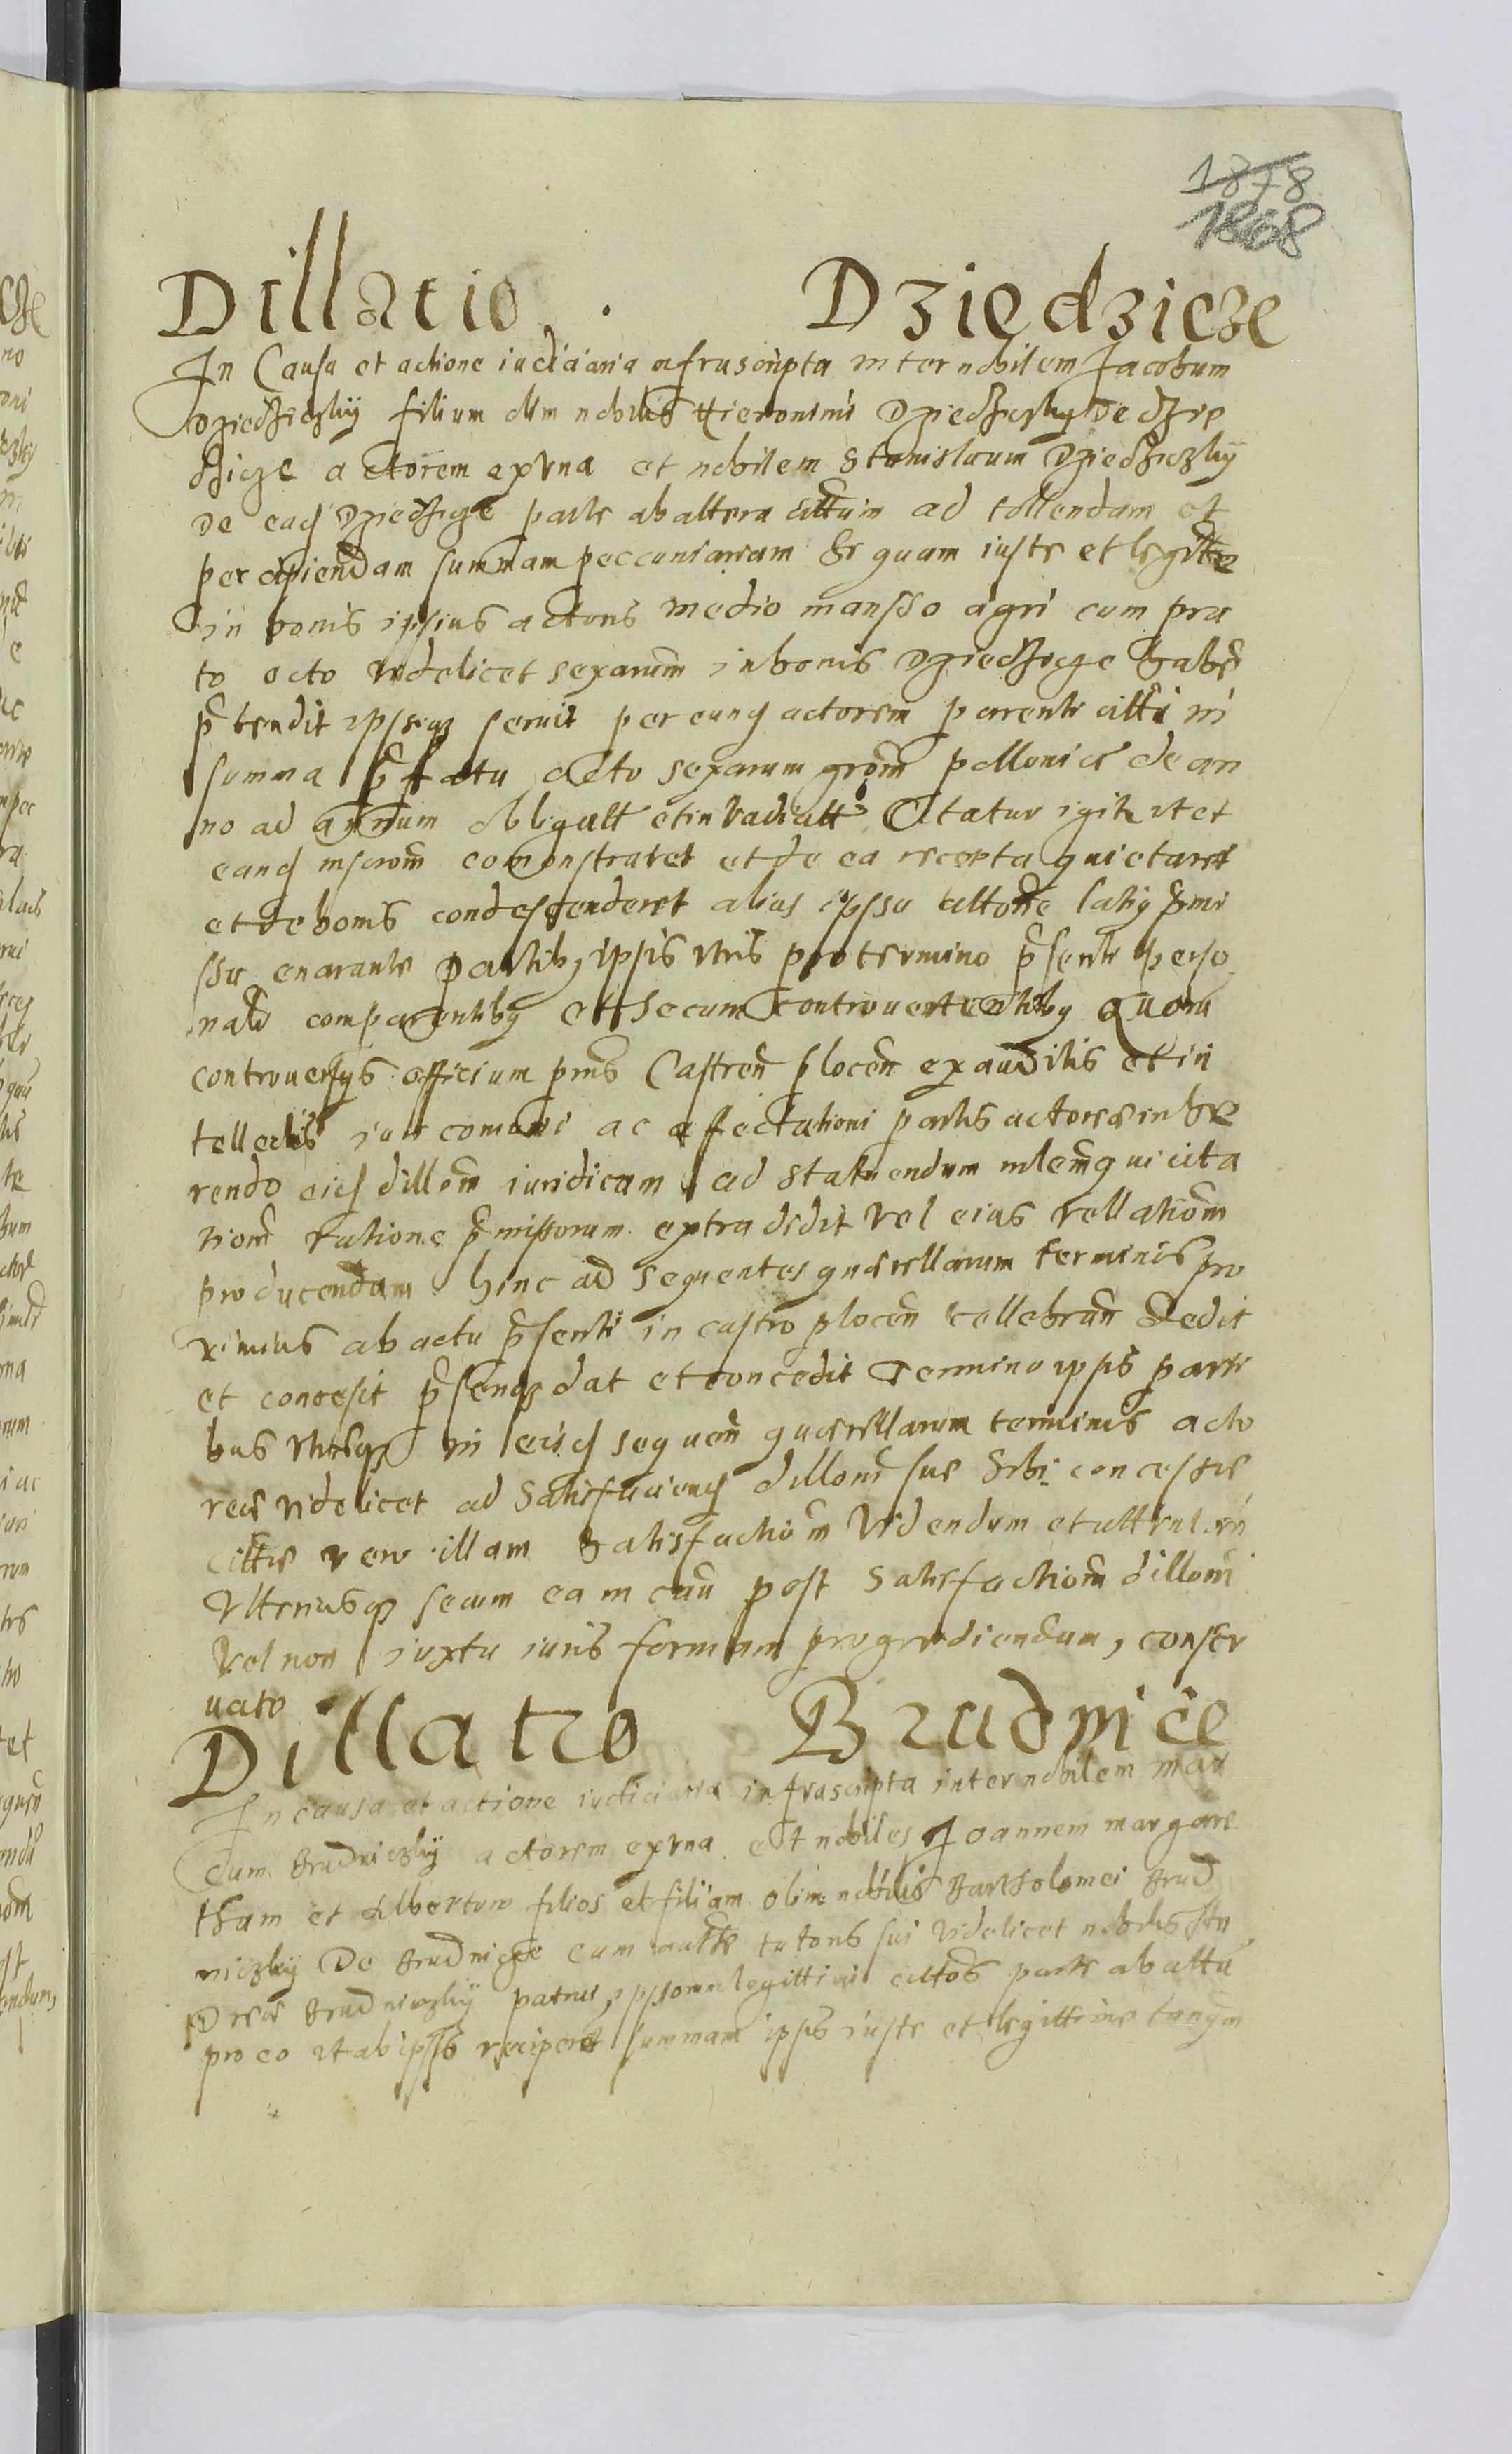 1878
1868
Dillatio. Dziedzicze
In Causa et actione iudiciaria infrascripta inter nobilem Jacobum
Dziedziczky filium olim nobilis Hieronimi Dziedziczky de dzie
dzicze actorem ex vna et nobilem Stanislaum Dziedziczky
De eadem Dziedzicze parte ab altera citatum ad tollendam et
percipiendam summam peccuniariam Se quam iuste et legitte
in bonis ipsius actoris medio mansso agri cum pra
to octo videlicet sexarum in bonis Dziedzicze habere
prtendit ipsseque fenit per eund actorem parente citti in
summa prfata octo sexarum grom pollonica de an
no ad annum obligatt et invadiatt Citatur igitr vt et
eand inscrom comonstraret et de ea recepta quietaret
et de bonis condescenderet alias ipssa cittone latiq prmi
ssa enarante Partibq ipsis vtris pro termino prsenti perso
nalr comparentibq et secum controuertentibq Quoru
controuersys officium pns Castren plocen exauditis et in
tellectis iuri comuni ac affectationi partis actorea inhe
rendo eid dillom iuridicam ad statuendum mlemqui cita
tiom ratione prmissorum extradidit vel eius rellatiom
producendam hinc ad sequentes querellarum terminos pro
ximius ab actu prsenti in castro plocen cellebran dedit
et concesit prsensq dat et concedit Termino ipsis parti
bus vtrisq in eisd sequen quaerellarum terminis acto
rea videlicet ad satisfaciend dillom sue sibi concesse
citte vero illam satisfactiom videndum et
Vlteriusq secum ea in cau post satisfactiom dillom
vel non iuxta iuris formam progrediendum, conser
uato
Dillatio Brudnice
In causa et actione iudiciaria infrascripta inter nobilem mar
cum Brudniczky actorem ex vna et nobiles Joannem margare
tham et Albertum filios et filiam olim nobilis Bartholomei Brud
niczky De Brudnicze cum autte tutoris sui videlicet nobilis An
Drea Brudniczky patrui ipssorum legittimi cittos parte ab altra
pro eo vt ab ipsis reciperet summam ipsis iuste et legittime tanqm